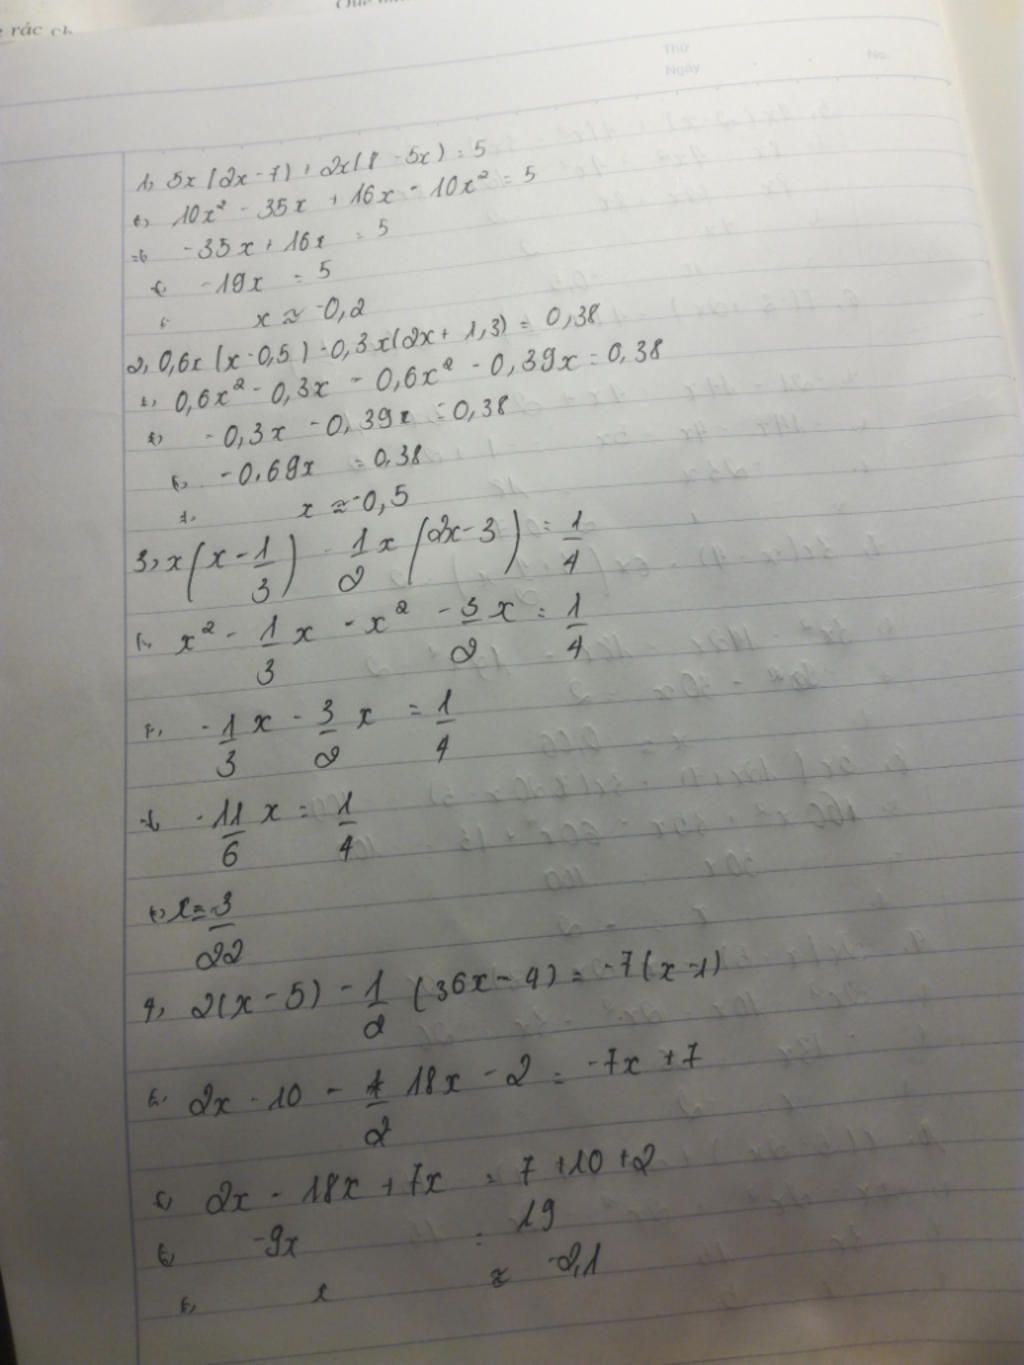 rác
Thứ
Ngày
No.
1, 5x(2x-7) + 2x(8-5x) = 5
10x² - 35x + 16x - 10x² = 5
-35x + 16x = 5
-19x = 5
x ≈ -0,2
2, 0,6x(x-0,5) - 0,3x(2x+1,3) = 0,38
0,6x² - 0,3x - 0,6x² - 0,39x = 0,38
-0,3x - 0,39x = 0,38
-0,69x = 0,38
x ≈ -0,5
3, x(x - 1/3) - 1/2 x (2x-3) = 1/4
x² - 1/3 x - x² - 3/2 x = 1/4
-1/3 x - 3/2 x = 1/4
-11/6 x = 1/4
x = -3/22
4, 2(x-5) - 1/2 (36x-4) = -7(x-1)
2x - 10 - 18x - 2 = -7x + 7
2x - 18x + 7x = 7 + 10 + 2
-9x = 19
x ≈ -2,1